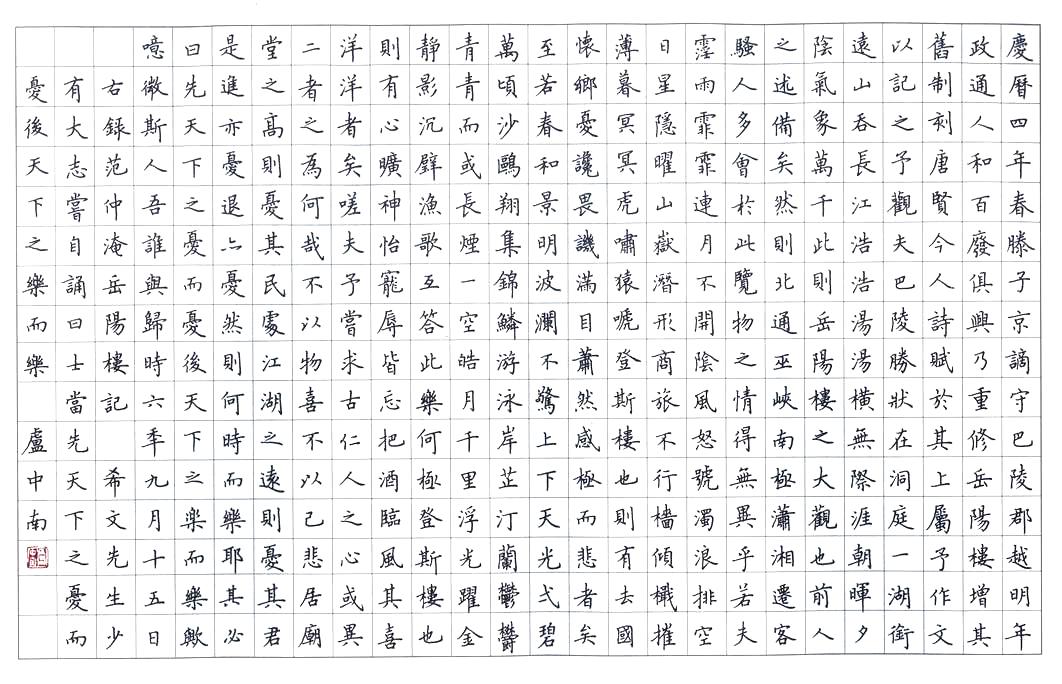 慶曆四年春滕子京謫守巴陵郡越明年
政通人和百廢俱興乃重修岳陽樓增其
舊制刻唐賢今人詩賦於其上屬予作文
以記之予觀夫巴陵勝狀在洞庭一湖銜
遠山吞長江浩浩湯湯橫無際涯朝暉夕
陰氣象萬千此則岳陽樓之大觀也前人
之述備矣然則北通巫峽南極瀟湘遷客
騷人多會於此覽物之情得無異乎若夫
霪雨霏霏連月不開陰風怒號濁浪排空
日星隱曜山嶽潛形商旅不行檣傾檝摧
薄暮冥冥虎嘯猿唬登斯樓也則有去國
懷鄉憂讒畏譏滿目蕭然感極而悲者矣
至若春和景明波瀾不驚上下天光弌碧
萬頃沙鷗翔集錦鱗游泳岸芷汀蘭鬱鬱
青青而或長煙一空皓月千里浮光躍金
靜影沉璧漁歌互答此樂何極登斯樓也
則有心曠神怡寵辱皆忘把酒臨風其喜
洋洋者矣嗟夫予嘗求古仁人之心或異
二者之為何哉不以物喜不以己悲居廟
堂之高則憂其民處江湖之遠則憂其君
是進亦憂退亦憂然則何時而樂耶其必
曰先天下之憂而憂後天下之樂而樂歟
噫微斯人吾誰與歸時六年九月十五日
右錄范仲淹岳陽樓記 希文先生少
有大志嘗自誦曰士當先天下之憂而
憂後天下之樂而樂 盧中南